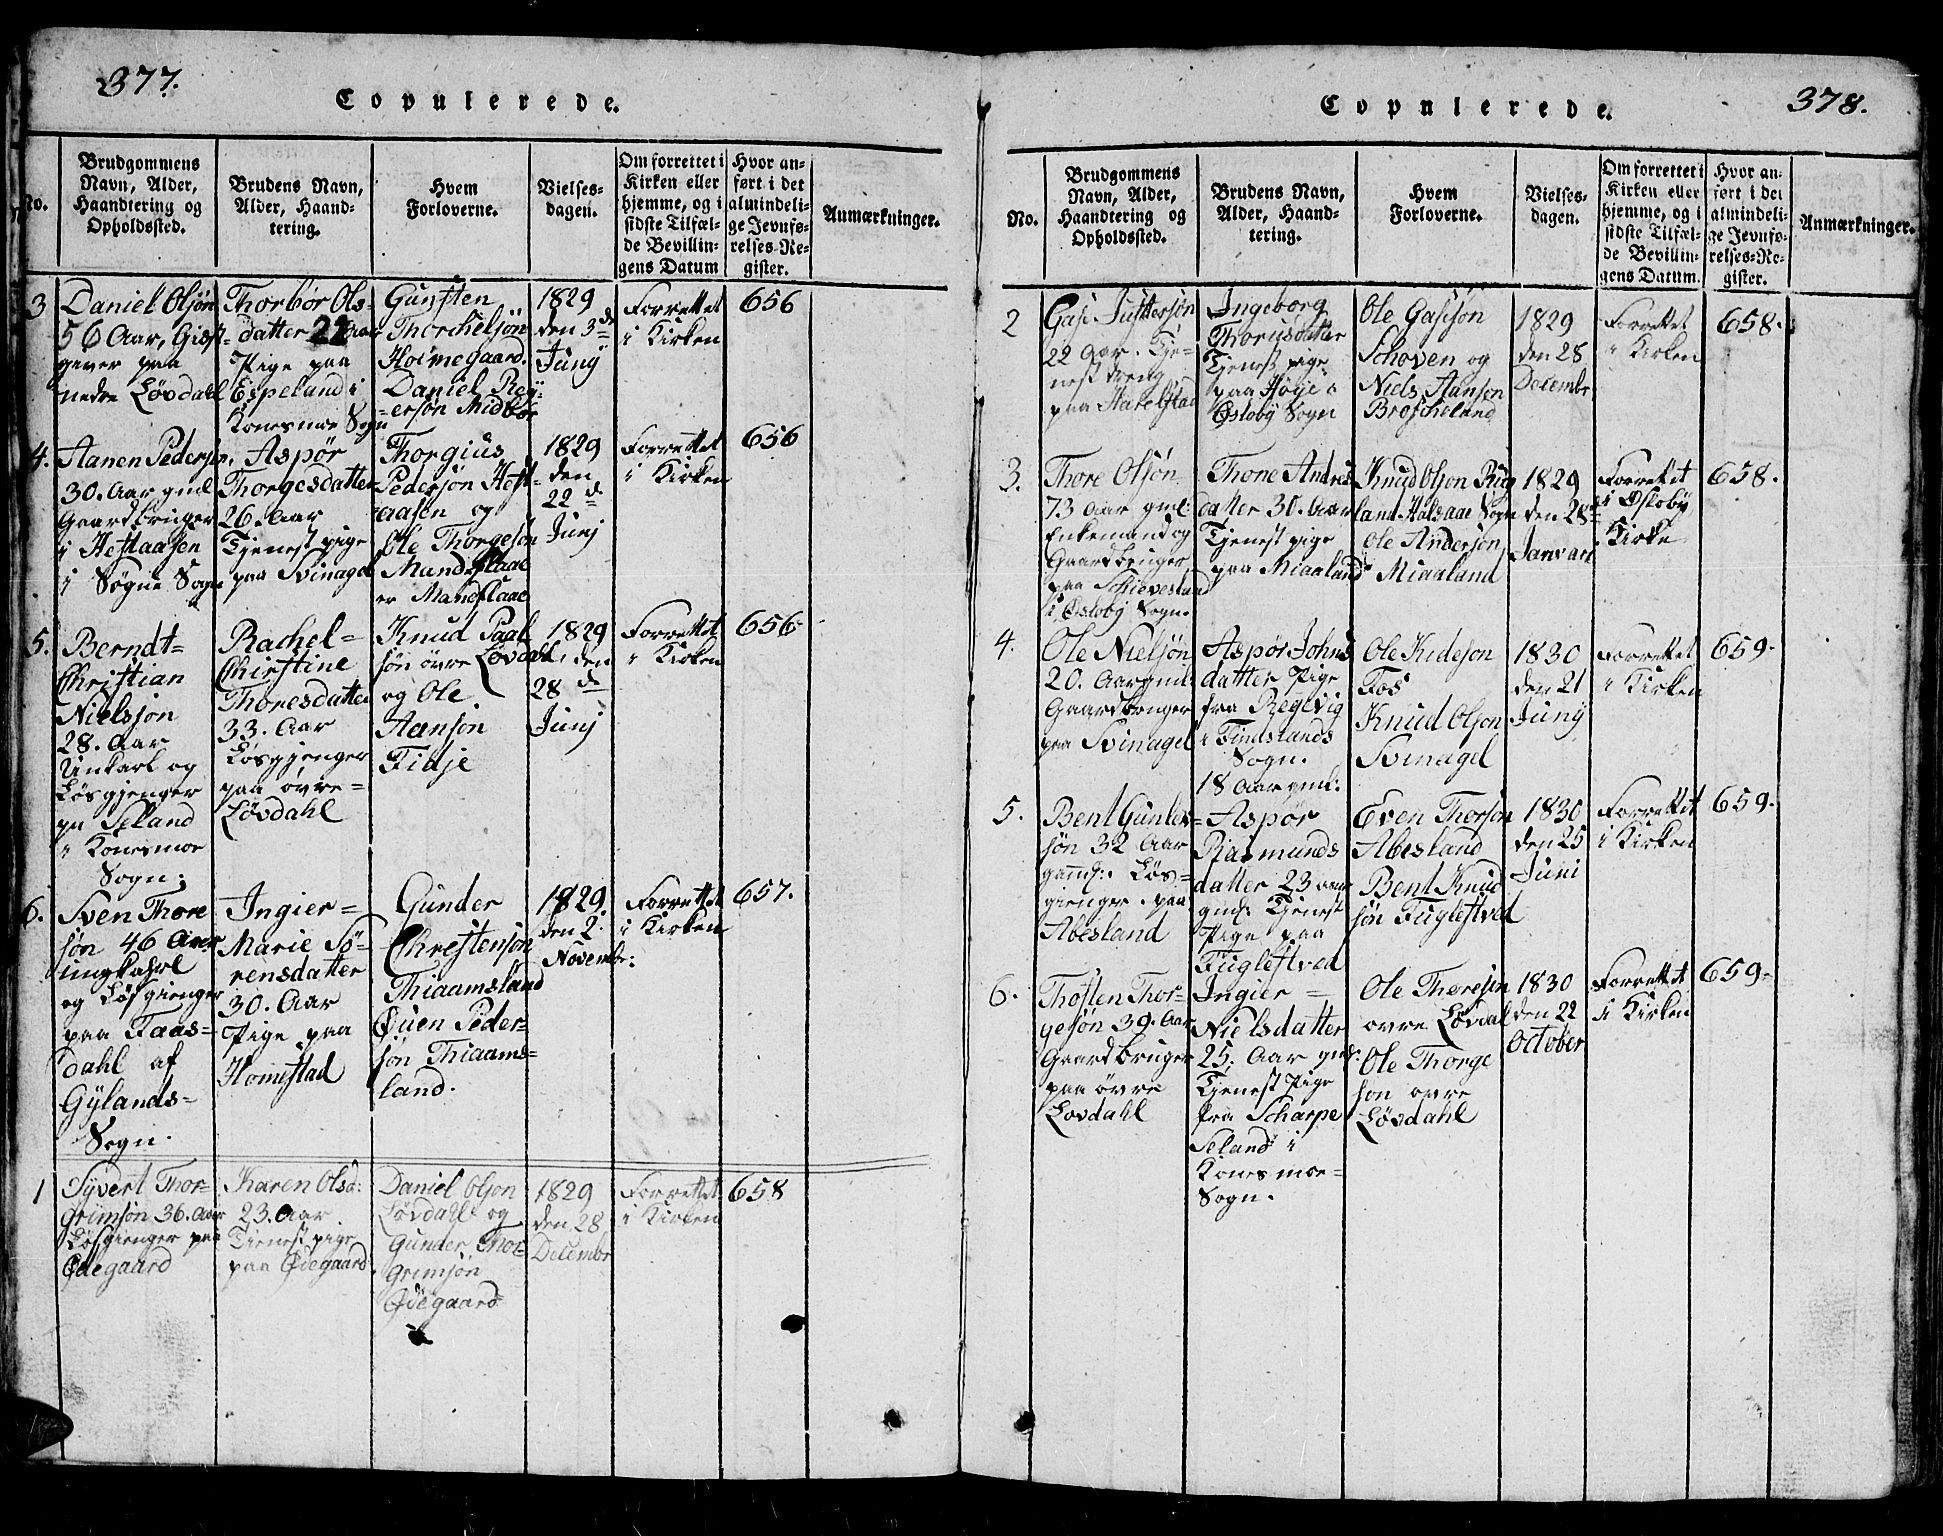 377.
Copulerede.
No.
Brudgommens
Navn, Alder,
Haandtering og
Opholdssted.
Brudens Navn,
Alder, Haand-
tering.
Hvem
Forloverne.
Vielses-
dagen.
Om forrettet i
Kirken eller
hjemme, og i
sidste Tilfæl-
de Bevillin-
gens Datum
Hvor an-
ført i det
almindeli-
ge Jevnfø-
relses-Re-
gister.
Anmærkninger.
3
Daniel Olsøn
56 Aar, Giæst-
giver paa
nedre Løvdahl
Thorbør Ols-
datter 22 Aar
Pige paa
Espeland i
Konesmoe Sogn
Gunsten
Thorkelsøn
Holmegaard.
Daniel Rey-
ersøn Midbøe
1829
den 3de
Junÿ
Forrettet
i Kirken
656
4.
Aanen Pedersøn
30. Aar gml
Gaardbruger
i Heslaasen
i Søgne Sogn
Aspør
Thorgesdatter
26. Aar
Tjenestpige
paa Svinagel
Thorgius
Pedersøn Hest-
aasen og
Ole Thorgesøn
Mandflaae
er Mandflaae
1829
den
22d
Junj
Forrettet
i Kirken
656
5.
Berndt-
Christian
Nielssøn
28. Aar
Unkarl og
Løsgjenger
pa Seland
i Konesmoe
Sogn;
Rachel-
Christine
Thoresdatter
33. Aar
Løsgjenger
paa øvre-
Løvdahl
Knud Paal
søn øvre Løvdahl
og Ole
Aansøn
Fidje
1829
den
28de
Junj
Forrettet
i Kirken
656
6.
Sven Thore
søn 46 Aar
ungkahrl
og Løsgienger
paa Faas-
dahl af
Gÿlands-
Sogn.
Ingier-
Marie Sö-
rensdatter
30. Aar
Pige paa
Homestad
Gunder
Chrestensøn
Thiaamsland
Øuen Peder-
søn Thiaams-
land.
1829.
den 2.
Novembr:
Forrettet
i Kirken
657.
1
Syvert Thor-
grimsøn 36. Aar
Løsgienger paa
Ødegaard
Karen Olsd:
23. Aar
Tienestpige
paa Ødegaard
Daniel Olsøn
Løvdahl og
Gunder Thor-
grimsøn
Ødegaard
1829
den 28
Decembr
Forrettet
i Kirken
658
378.
Copulerede.
No.
Brudgommens
Navn, Alder,
Haandtering og
Opholdssted.
Brudens Navn,
Alder, Haand-
tering.
Hvem
Forloverne.
Vielses-
dagen.
Om forrettet i
Kirken eller
hjemme, og i
sidste Tilfæl-
de Bevillin-
gens Datum.
Hvor an-
ført i det
almindeli-
ge Jevnfø-
relses-Re-
gister.
Anmærkninger.
2
Gasi Justersøn
22 Aar. Tje-
nest dreng
paa Harelstad
Ingeborg
Thorisdatter
Tjenest pige
paa Høye
Øsloby Sogn
Ole Gassøn
Schoven og
Niels Aansen
Brøscheland
1829
den 28
Decembr
Forrettet
i Kirken
658.
3.
Thore Olsøn
73 Aar gml:
Enkemand og
Gaardbruger
paa Schieveland
i Øsloby Sogn.
Thone Andres
datter 30. Aar
Tjenest pige
paa Miaaland
Knud Olson
land Halsaae Sogn
Ole Andersøn
Miaaland
1829
den 28de
Januari
Forrettet
i Øsloby
Kirke
658.
4.
Ole Nielsøn
20. Aar gml:
Gaardbruger
paa Svinagel
Aspør Johns
datter Pige
fra Regevig
i Findslands
Sogn.
18 Aar gml:
Ole Kideson
Fos
Knud Olson
Svinagel
1830
den 21
Junÿ
Forrettet
i Kirken
659.
5.
Bent Gunder-
søn 32 Aar
gaml: Løs-
gienger paa
Abesland
Aspør
Rasmunds
datter 23 aar
gml: Tjenest
Pige paa
Fuglestved
Even Thorson
Abesland
Bent Knud
søn Fuglestved
1830
den 25
Juni
Forrettet
i Kirken
659.
6.
Thosten Thor-
gesøn 39. Aar
Gaardbruger
paa øvre
Lovdahl
Ingier-
Nielsdatter
25. Aar gml:
Tjenest Pige
fra Scharpe
Seland i
Konesmoe-
Sogn.
Ole Theresøn
ovre Løvdal
Ole Thorge
son ovre
Løvdahl
1830
den 22
October
Forrettet
i Kirken
659.